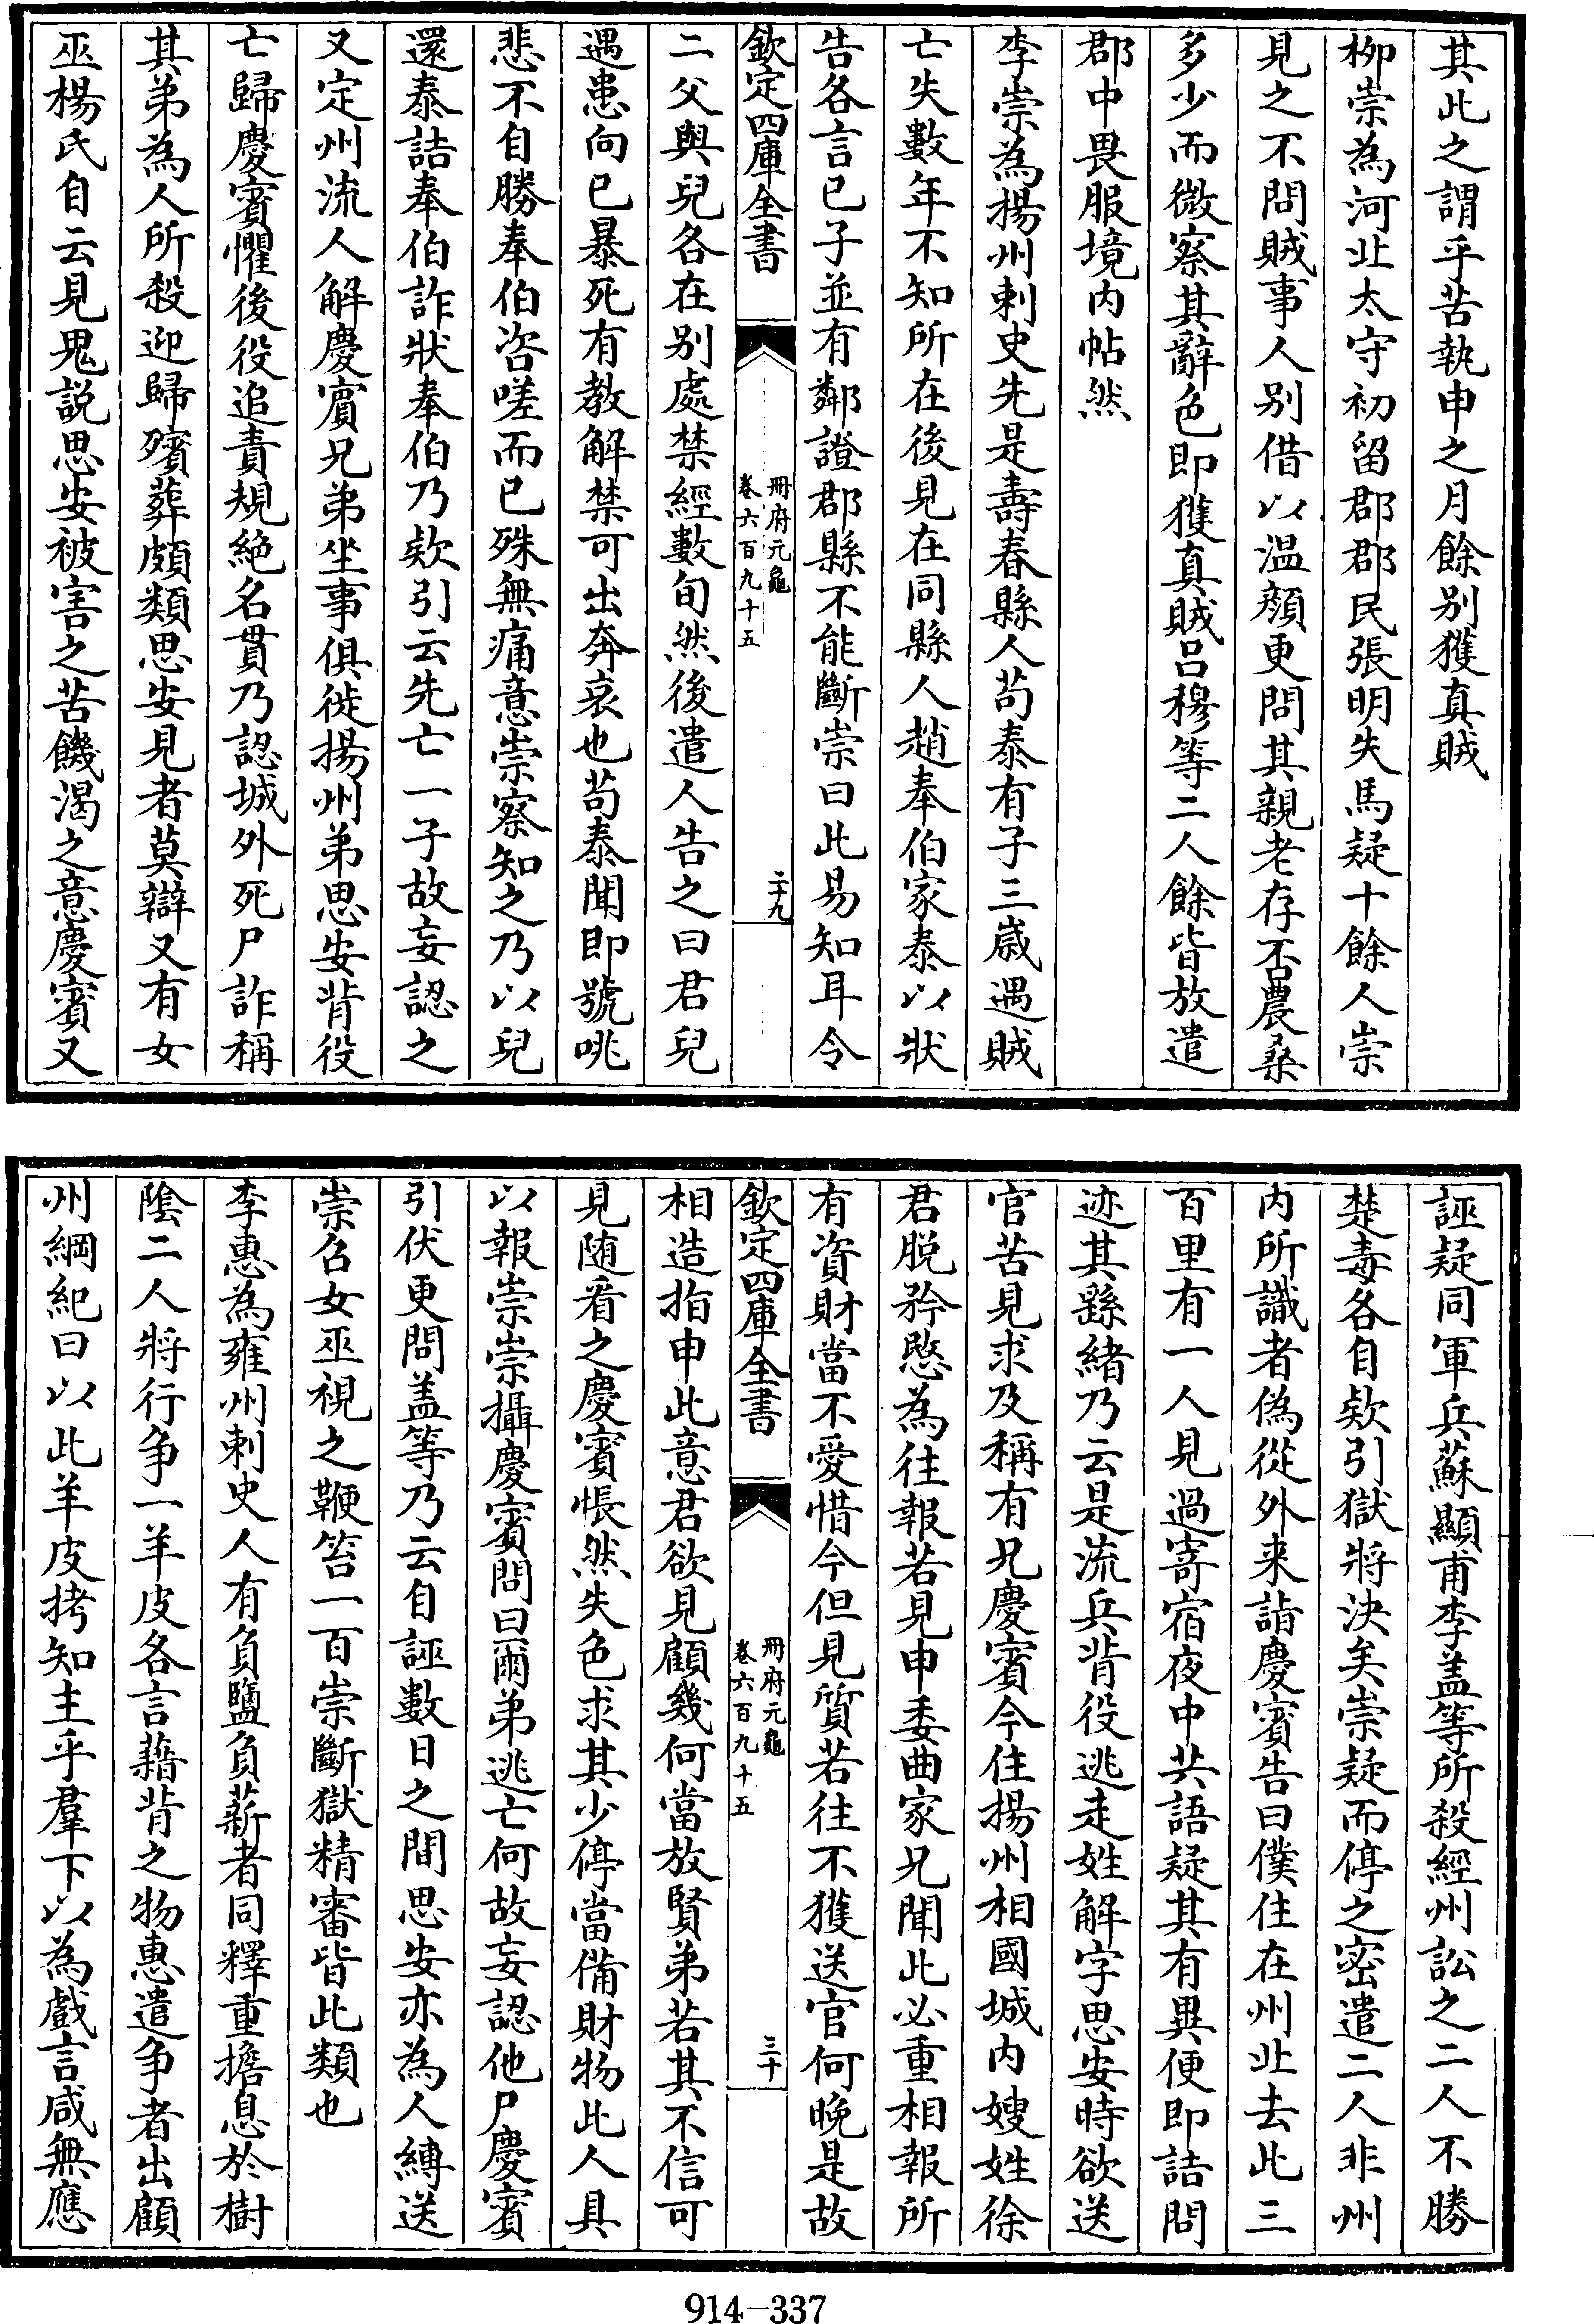 其此之謂乎苦執申之月餘别獲真賊
柳崇為河北太守初留郡郡民張明失馬疑十餘人崇
見之不問賊事人别借以温顔更問其親老存否農桑
多少而微察其辭色即獲真賊吕穆等二人餘皆放遣
郡中畏服境内帖然
李崇為揚州刺史先是壽春縣人茍泰有子三歳遇賊
亡失數年不知所在後見在同縣人趙奉伯家泰以狀
告各言已子並有鄰證郡縣不能斷崇曰此易知耳令
欽定四庫全書
冊府元龜
卷六百九十五
二十九
二父與兒各在别處禁經數旬然後遣人告之曰君兒
遇患向已暴死有教解禁可出奔哀也茍泰聞即號咷
悲不自勝奉伯咨嗟而已殊無痛意崇察知之乃以兒
還泰詰奉伯詐狀奉伯乃欵引云先亡一子故妄認之
又定州流人解慶賓兄弟坐事俱徙揚州弟思安背役
亡歸慶賓懼後役追責規絶名貫乃認城外死尸詐稱
其弟為人所殺迎歸殯葬頗類思安見者莫辯又有女
巫楊氏自云見鬼説思安被害之苦饑渴之意慶賓又
誣疑同軍兵蘇顯甫李盖等所殺經州訟之二人不勝
楚毒各自欵引獄將決矣崇疑而停之密遣二人非州
内所識者偽從外来詣慶賓告曰僕住在州北去此三
百里有一人見過寄宿夜中共語疑其有異便即詰問
迹其繇緒乃云是流兵背役逃走姓解字思安時欲送
官苦見求及稱有兄慶賓今住揚州相國城内嫂姓徐
君脱矜愍為往報若見申委曲家兄聞此必重相報所
有資財當不愛惜今但見質若往不獲送官何晚是故
欽定四庫全書
冊府元龜
卷六百九十五
三十
相造指申此意君欲見顧幾何當放賢弟若其不信可
見随看之慶賓悵然失色求其少停當備財物此人具
以報崇崇攝慶賓問曰爾弟逃亡何故妄認他尸慶賓
引伏更問盖等乃云自誣數日之間思安亦為人縛送
崇召女巫視之鞭笞一百崇斷獄精審皆此類也
李惠為雍州刺史人有負鹽負薪者同釋重擔息於樹
隂二人將行爭一羊皮各言藉背之物惠遣爭者出顧
州綱紀曰以此羊皮拷知主乎羣下以為戲言咸無應
914-337